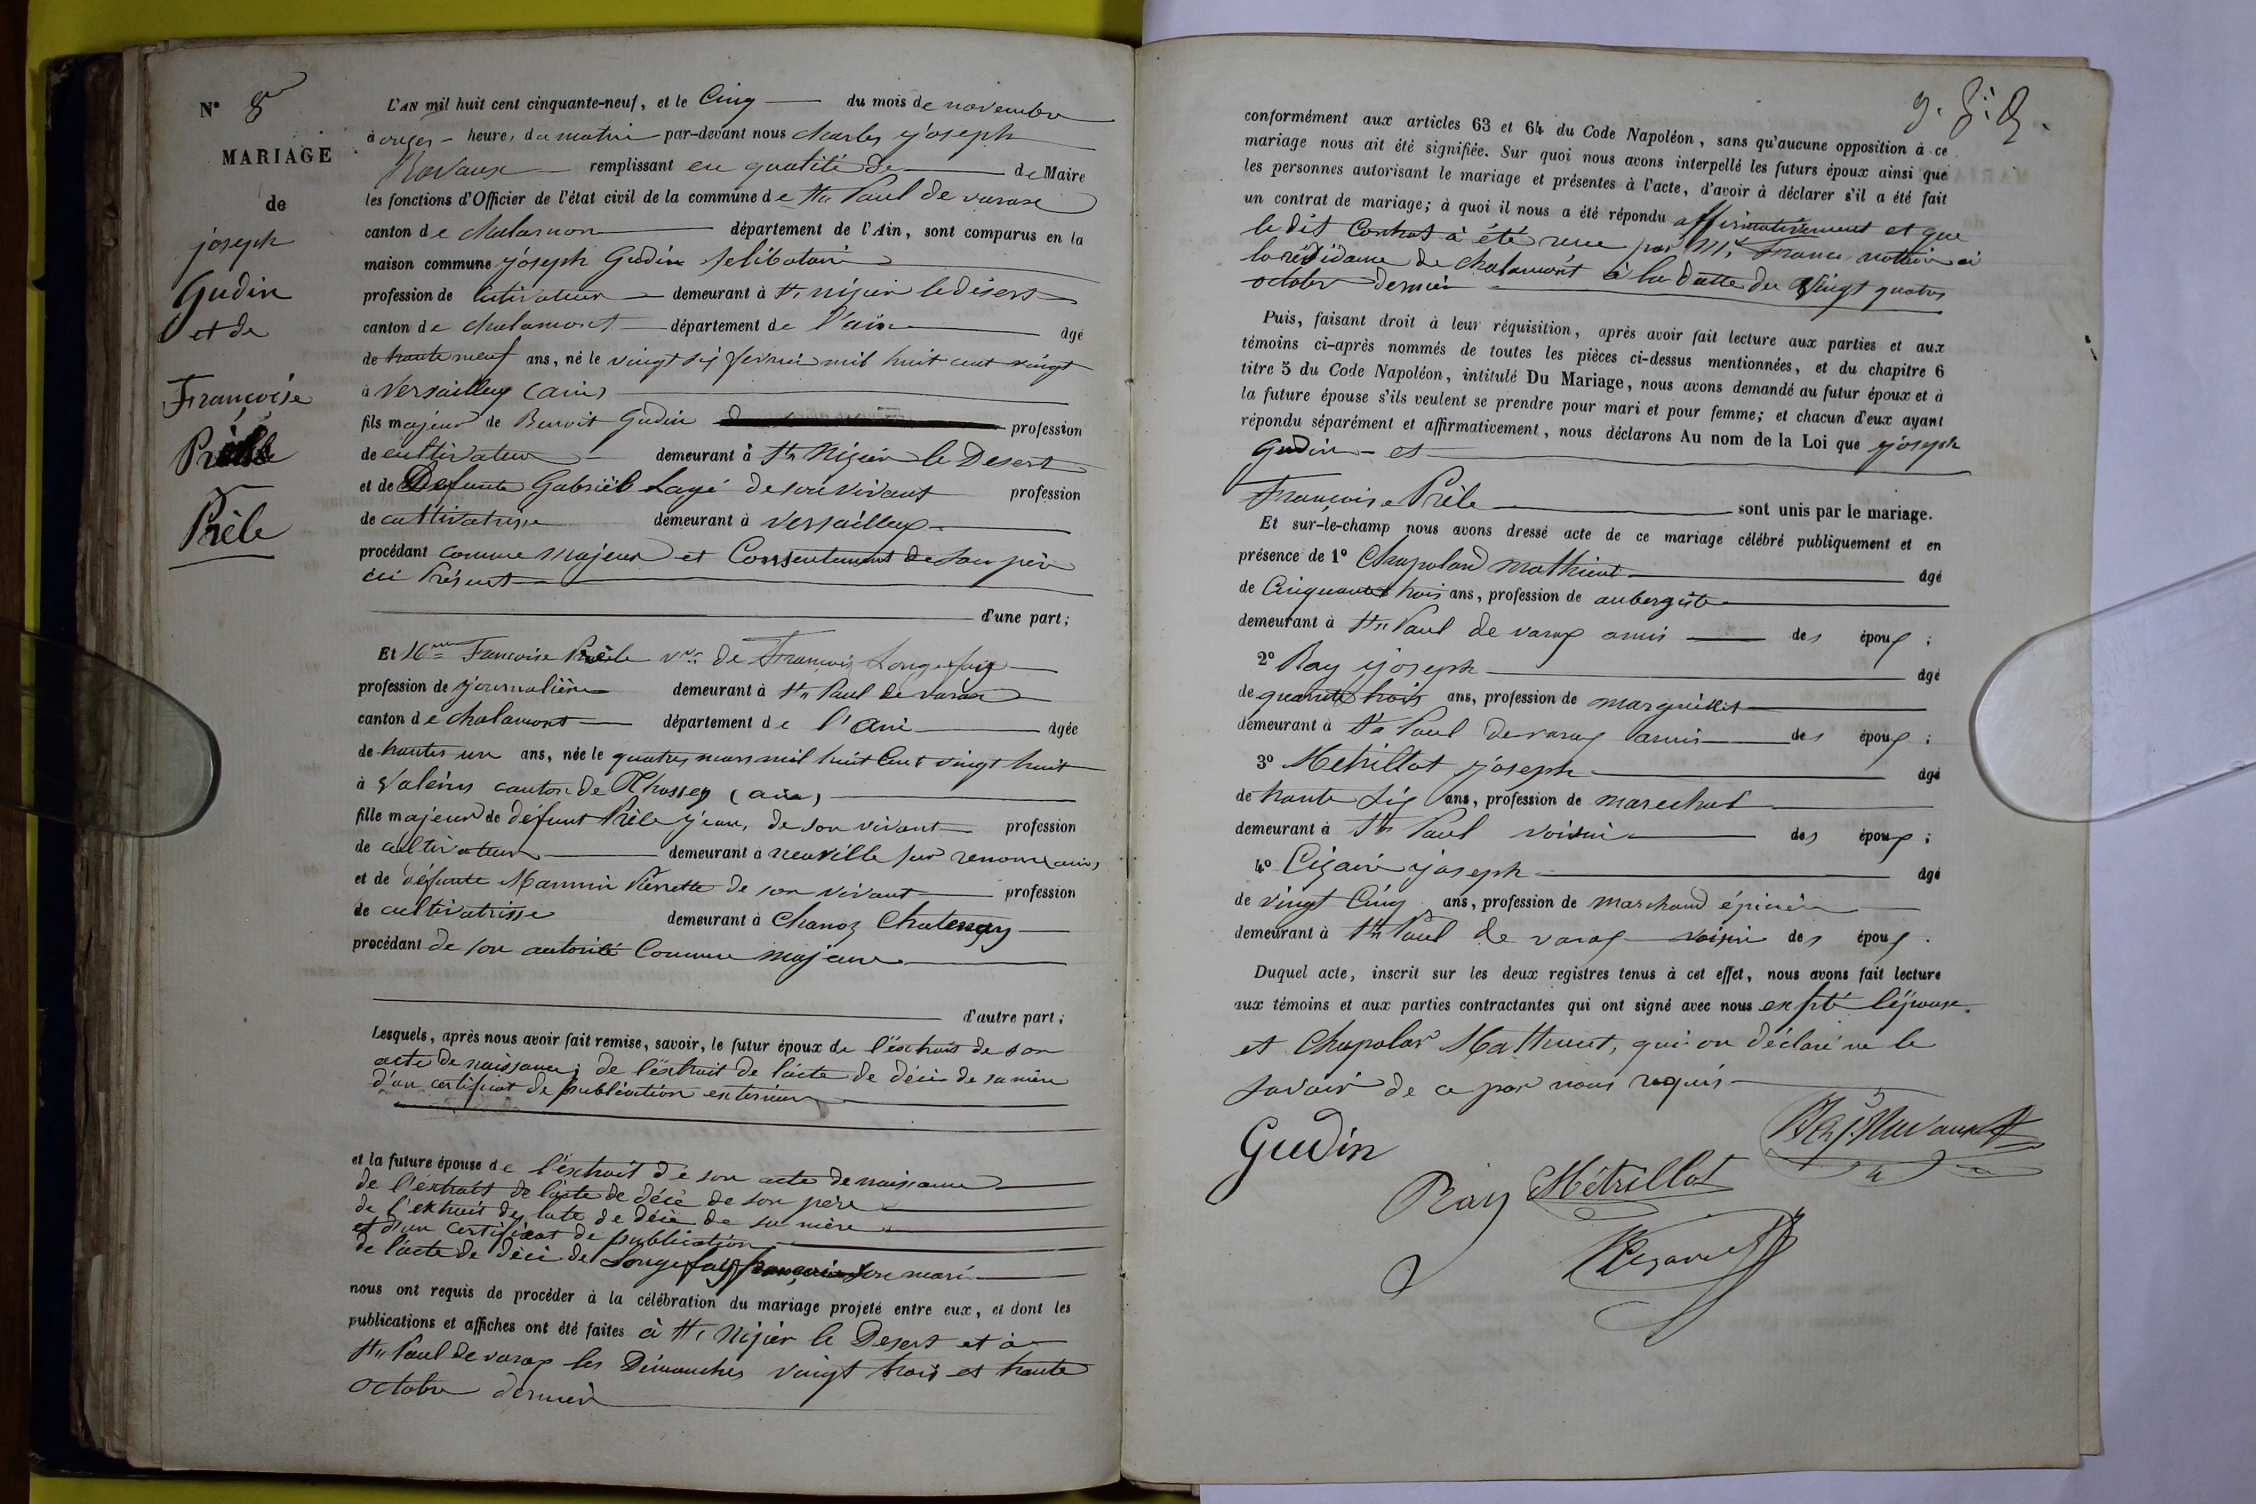 N° 8
MARIAGE
de
joseph
Gudin
et de
Françoise
Prèle
L'AN mil huit cent cinquante-neuf, et le Cinq du mois de novembre
à onzes heure, du matin par-devant nous charles joseph
Navaux remplissant en qualité de de Maire
les fonctions d'Officier de l'état civil de la commune de St Paul de varax
canton de chalamon département de l'Ain, sont comparus en la
maison commune joseph Gudin selibataire
profession de cutivateur demeurant à St nizier le désert
canton de chalamont département de l'ain âgé
de trante neuf ans, né le vingt six fevrier mil huit cent vingt
à Versailleux (ain)
fils majeur de Benoit Gudin profession
de cultivateur demeurant à St Nizier le Desert
et de Defunte Gabriël Layé de son vivant profession
de cultivatrisse demeurant à versailleux
procédant comme majeur et Consentement de son père
ici Présent
d'une part;
Et Françoise Prèle vve de François Longefay
profession de journalière demeurant à St Paul de varax
canton de chalamont département de l'Ain âgée
de trantes un ans, née le quatres mars mil huit Cent vingt huit
à Valeins canton de Thossey (ain)
fille majeur de défunt Prèle jean, de son vivant profession
de cultivateur demeurant à neuville sur renom (ain)
et de défunte Mannin Pierrette de son vivant profession
de cultivatrisse demeurant à Chanoz Chatenay
procédant de son autorité Comme majeure
d'autre part;
Lesquels, après nous avoir fait remise, savoir, le futur époux de l'extrait de son
acte de naissance; de l'extrait de l'acte de décè de sa mère
d'un certificat de publication exterieur
et la future épouse de l'extrait de son acte de naissance
de l'extrait de l'acte de décè de son père
de l'extrait de l'acte de décè de sa mère
et d'un certificat de publication
de l'acte de décè de Longefay françois son mari
nous ont requis de procéder à la célébration du mariage projeté entre eux, et dont les
publications et affiches ont été faites à St Nizier le Desert et à
St Paul de varax les Dimanches vingt trois et trante
octobre dernier
conformément aux articles 63 et 64 du Code Napoléon, sans qu'aucune opposition à ce
mariage nous ait été signifiée. Sur quoi nous avons interpellé les futurs époux ainsi que
les personnes autorisant le mariage et présentes à l'acte, d'avoir à déclarer s'il a été fait
un contrat de mariage; à quoi il nous a été répondu affirmativement et que
le dit Contrat à été reçu par Me Franc notaire a
la résidance de chalamont à la datte du Vingt quatres
octobre dernier
Puis, faisant droit à leur réquisition, après avoir fait lecture aux parties et aux
témoins ci-après nommés de toutes les pièces ci-dessus mentionnées, et du chapitre 6
titre 5 du Code Napoléon, intitulé Du Mariage, nous avons demandé au futur époux et à
la future épouse s'ils veulent se prendre pour mari et pour femme; et chacun d'eux ayant
répondu séparément et affirmativement, nous déclarons Au nom de la Loi que joseph
Gudin et
Françoise Prèle sont unis par le mariage.
Et sur-le-champ nous avons dressé acte de ce mariage célébré publiquement et en
présence de 1° Chapoland mathieu âgé
de Cinquante trois ans, profession de aubergiste
demeurant à St Paul de varax amis des époux;
2° Ray joseph âgé
de quarante trois ans, profession de marguillet
demeurant à St Paul de varax amis des époux;
3° Metrillot joseph âgé
de trante six ans, profession de marechal
demeurant à St Paul voisin des époux;
4° joseph âgé
de vingt Cinq ans, profession de marchand épicier
demeurant à St Paul de varax voisin des époux.
Duquel acte, inscrit sur les deux registres tenus à cet effet, nous avons fait lecture
aux témoins et aux parties contractantes qui ont signé avec nous exepté l'épouse
et Chapolar Mathieu, qui on déclaré ne le
savoir de ce par nous requis
Gudin
Ray Métrillot